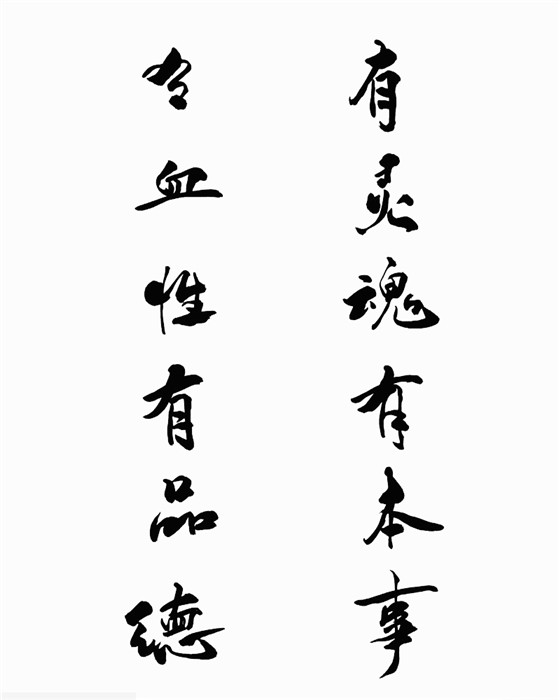 有灵魂有本事
有血性有品德